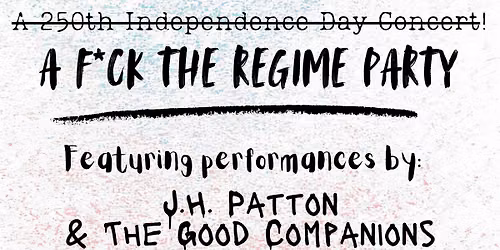 A 250th Independence Day Concert!
A F*CK THE REGIME PARTY
Featuring performances by:
J.H. PATTON
& THE GOOD COMPANIONS